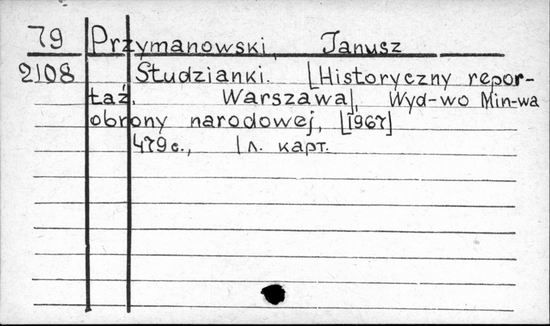 79 Przymanowski, Janusz
2108 Studzianki. [Historyczny repor-
taż. Warszawa], Wyd-wo Min-wa
obrony narodowej, [1967]
479 с., 1 л. карт.